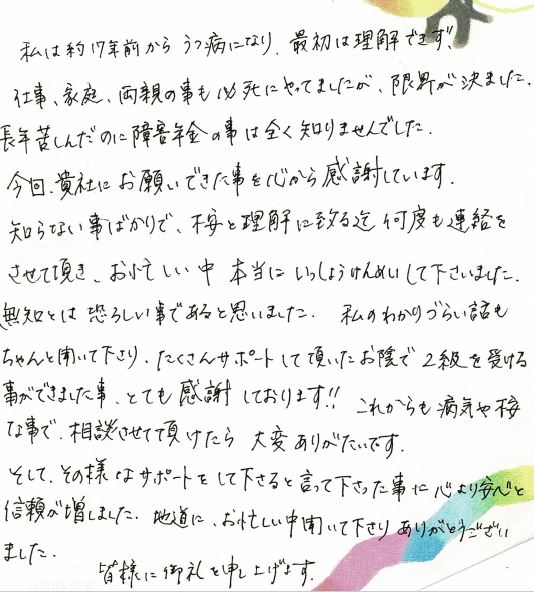 私は約17年前からうつ病になり、最初は理解できず、
仕事、家庭、両親の事も必死にやってましたが、限界が決ました。
長年苦しんだのに障害年金の事は全く知りませんでした。
今回、貴社にお願いできた事を心から感謝しています。
知らない事ばかりで、不安と理解に致る迄何度も連絡を
させて頂き、お忙しい中本当にいっしょうけんめいして下さいました。
無知とは恐ろしい事であると思いました。私のわかりづらい話も
ちゃんと聞いて下さり、たくさんサポートして頂いたお陰で2級を受ける
事ができました事、とても感謝しております!!これからも病気や不安
な事で、相談させて頂けたら大変ありがたいです。
そして、その様なサポートをして下さると言って下さった事に心より安心と
信頼が増しました。地道に、お忙しい中聞いて下さりありがとうござい
ました。
皆様に御礼を申し上げます。